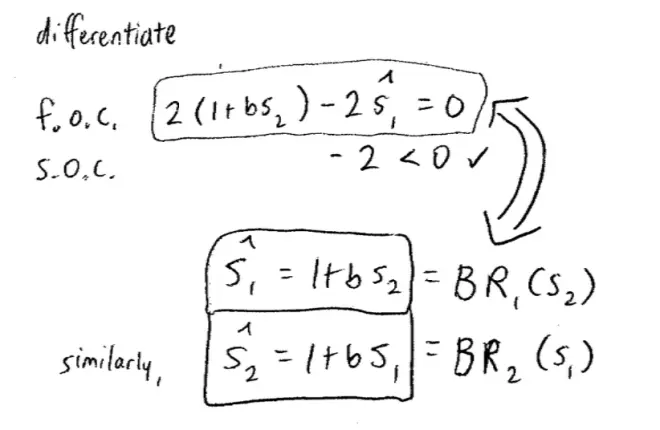 differentiate
f.o.c. 2(1+bS₂) - 2Ŝ₁ = 0
S.O.C. - 2 < 0 ✓
Ŝ₁ = 1+b S₂ = BR₁(S₂)
similarly, Ŝ₂ = 1+b S₁ = BR₂(S₁)